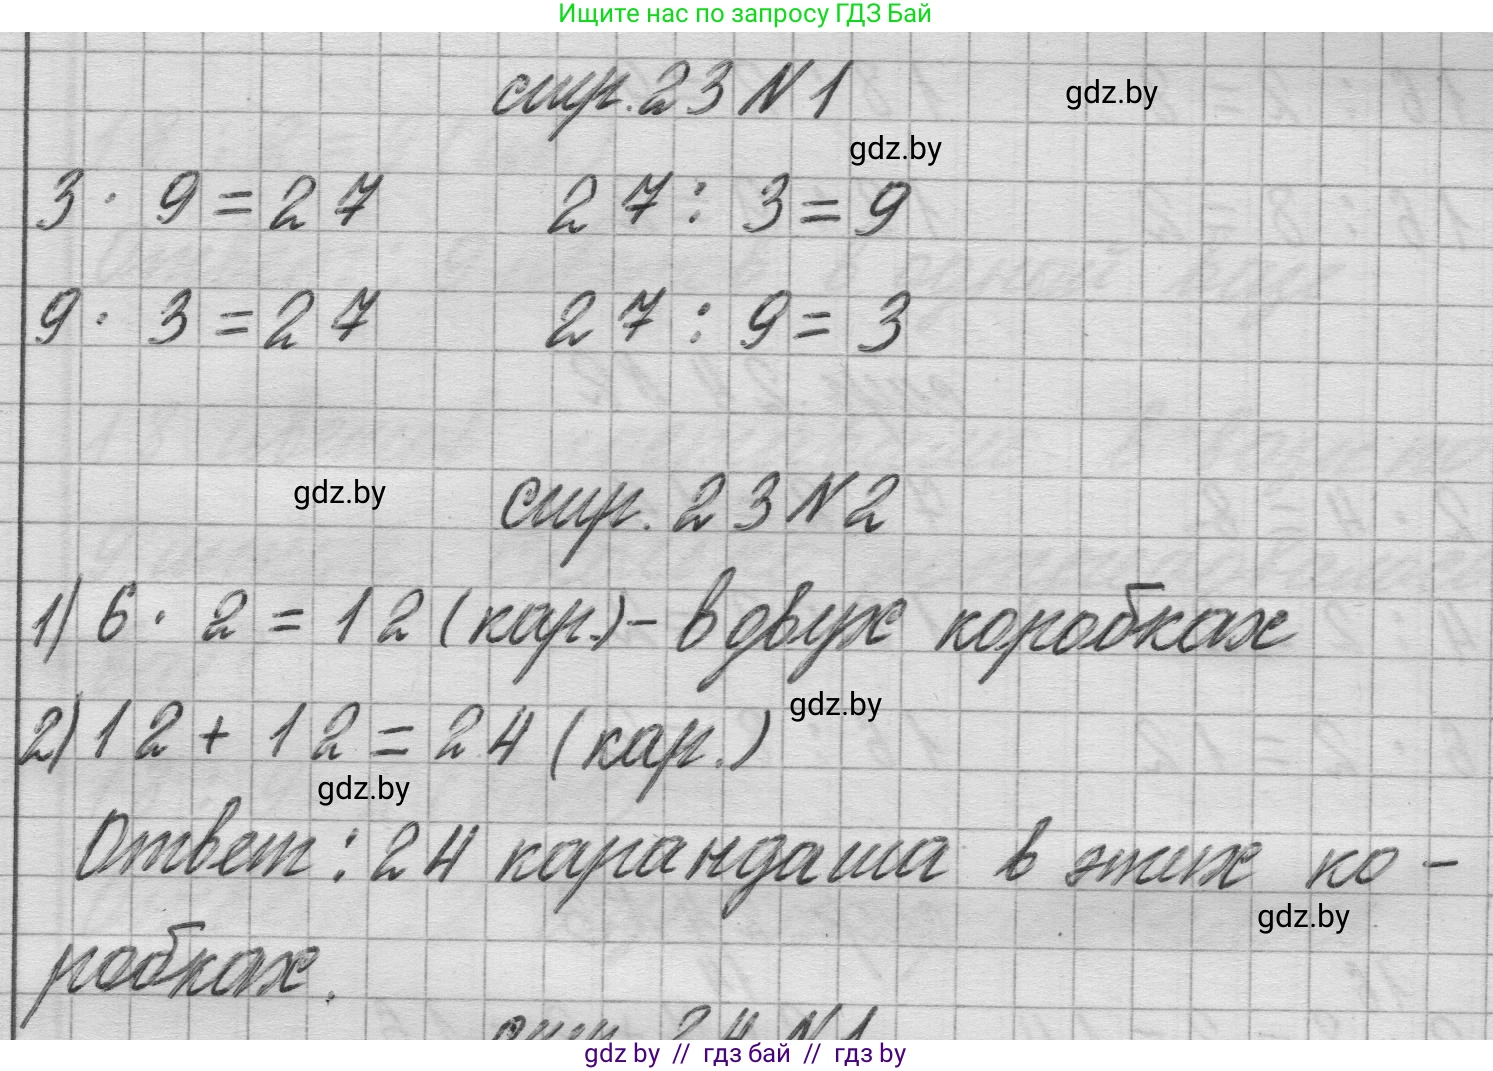 Ищите нас по запросу ГДЗ Бай
стр. 23 N 1
gdz.by
gdz.by
3 · 9 = 27 27 : 3 = 9
9 · 3 = 27 27 : 9 = 3
gdz.by
стр. 23 N 2
1) 6 · 2 = 12 (кар.) – в двух коробках
2) 12 + 12 = 24 (кар.)
gdz.by
gdz.by
Ответ: 24 карандаша в этих ко-
gdz.by
робках.
стр. 24 N 1
gdz by // гдз бай // гдз by